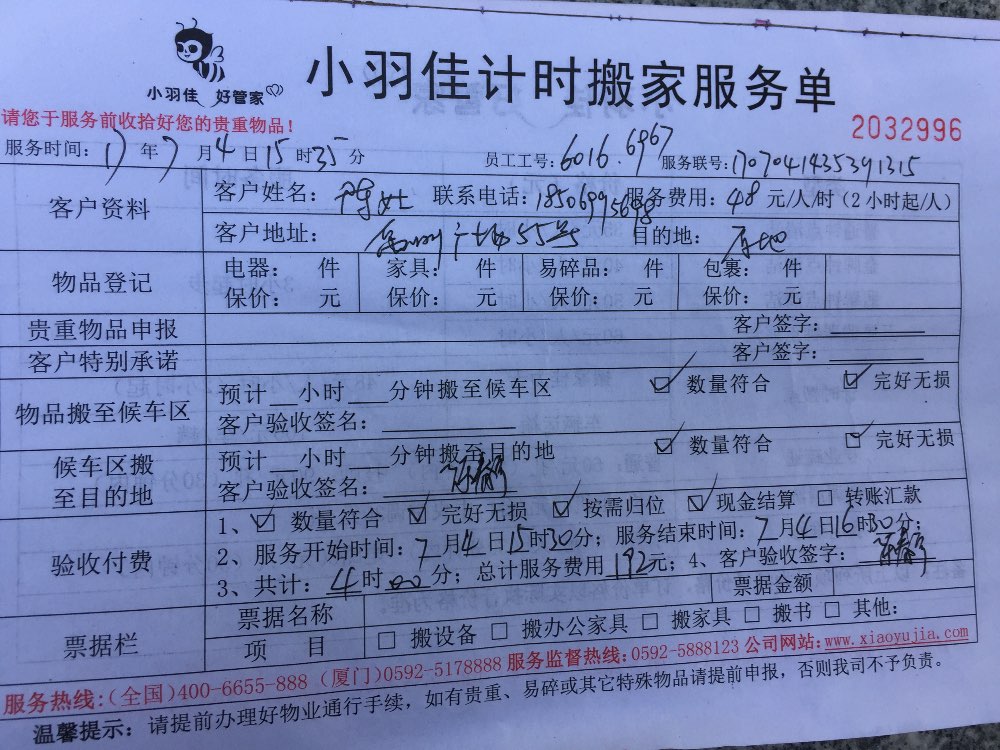 小羽佳 好管家
小羽佳计时搬家服务单
请您于服务前收拾好您的贵重物品!
2032996
服务时间: 17 年 7 月 4 日 15 时 35 分 员工工号: 6016.6967 服务联号: 1707041435391315
客户资料 客户姓名: 陈女士 联系电话: 18506995698 服务费用: 48 元/人/时（2小时起/人）
客户地址: 广场55号 目的地: 本地
物品登记 电器: 件 家具: 件 易碎品: 件 包裹: 件
保价: 元 保价: 元 保价: 元 保价: 元
贵重物品申报 客户签字:
客户特别承诺 客户签字:
物品搬至候车区 预计__小时___分钟搬至候车区 ☑ 数量符合 ☑ 完好无损
客户验收签名:
候车区搬至目的地 预计__小时___分钟搬至目的地 ☑ 数量符合 ☑ 完好无损
客户验收签名:
验收付费 1、☑ 数量符合 ☑ 完好无损 ☑ 按需归位 ☑ 现金结算 □ 转账汇款
2、服务开始时间: 7 月 4 日 15 时 30 分; 服务结束时间: 7 月 4 日 16 时 30 分;
3、共计: 4 时 00 分; 总计服务费用 192 元; 4、客户验收签字:
票据栏 票据名称 票据金额
项 目 □ 搬设备 □ 搬办公家具 □ 搬家具 □ 搬书 □ 其他:
服务热线:(全国)400-6655-888 (厦门)0592-5178888 服务监督热线:0592-5888123 公司网站:www.xiaoyujia.com
温馨提示: 请提前办理好物业通行手续，如有贵重、易碎或其它特殊物品请提前申报，否则我司不予负责。